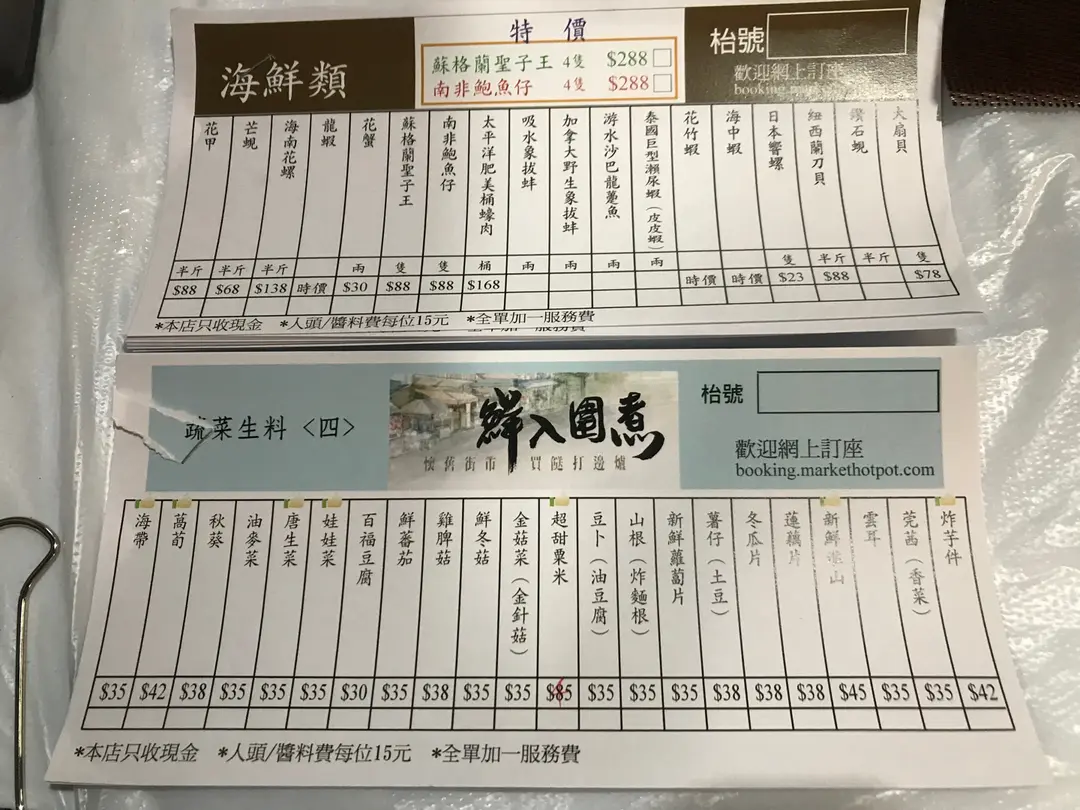 特價
蘇格蘭聖子王 4隻 $288
南非鮑魚仔 4隻 $288
海鮮類
枱號
歡迎網上訂座
花甲 半斤 $88
芒蜆 半斤 $68
海南花螺 半斤 $138
龍蝦 時價
花蟹 兩 $30
蘇格蘭聖子王 隻 $88
南非鮑魚仔 隻 $88
太平洋肥美桶蠔肉 桶 $168
吸水象拔蚌 兩
加拿大野生象拔蚌 兩
游水沙巴龍躉魚 兩
泰國巨型瀨尿蝦（皮皮蝦） 兩
花竹蝦 時價
海中蝦 時價
日本響螺 隻 $23
紐西蘭刀貝 半斤 $88
鑽石蜆 半斤
大扇貝 隻 $78
*本店只收現金 *人頭/醬料費每位15元 *全單加一服務費
蔬菜生料 <四>
鮮入圍煮
懷舊街市 買餸打邊爐
枱號
歡迎網上訂座
booking.markethotpot.com
海帶 $35
萵荀 $42
秋葵 $38
油麥菜 $35
唐生菜 $35
娃娃菜 $35
百福豆腐 $30
鮮蕃茄 $35
雞脾菇 $38
鮮冬菇 $35
金菇菜（金針菇） $35
超甜粟米
豆卜（油豆腐） $35
山根（炸麵根） $35
新鮮蘿蔔片 $35
薯仔（土豆） $38
冬瓜片 $38
蓮藕片 $38
新鮮淮山 $45
雲耳 $35
芫茜（香菜） $35
炸芋件 $42
*本店只收現金 *人頭/醬料費每位15元 *全單加一服務費